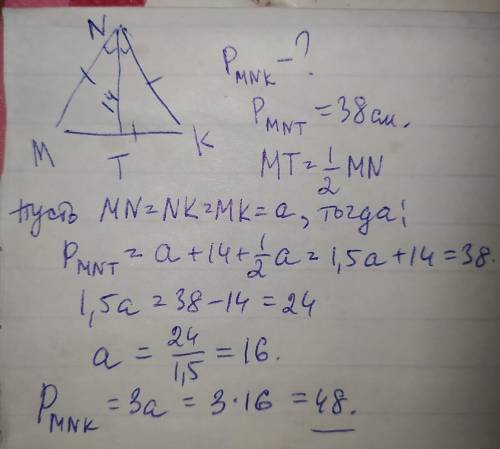 N
14
M
T
K
P_MNK - ?
P_MNT = 38 см.
MT = 1/2 MN
Пусть MN = NK = MK = a, тогда:
P_MNT = a + 14 + 1/2 a = 1,5a + 14 = 38.
1,5a = 38 - 14 = 24
a = 24/1,5 = 16.
P_MNK = 3a = 3·16 = 48.